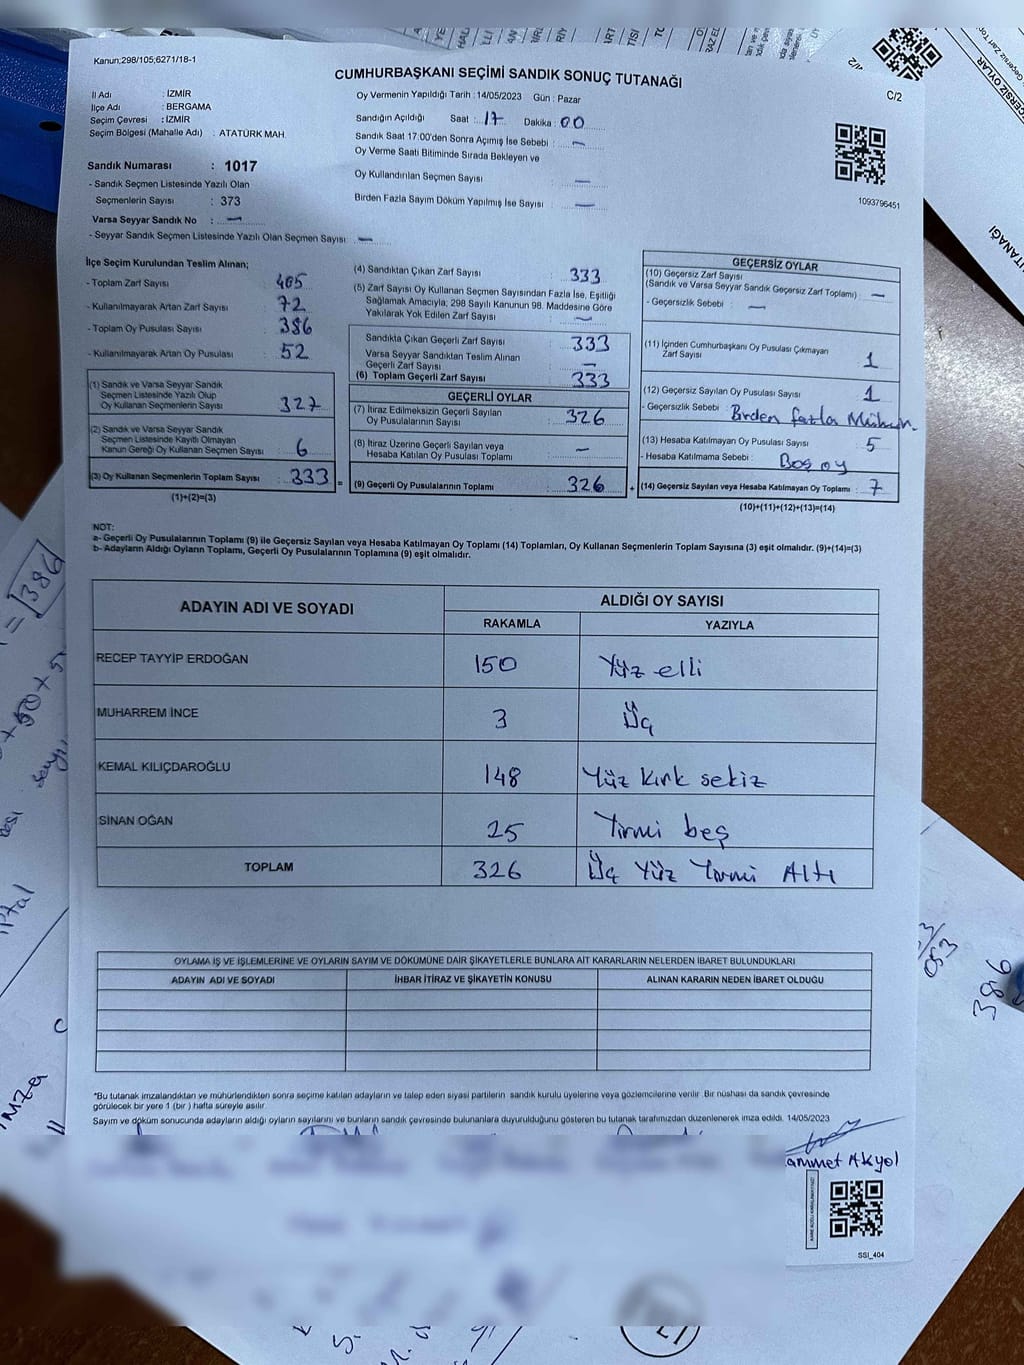 Kanun;298/105;6271/18-1
CUMHURBAŞKANI SEÇİMİ SANDIK SONUÇ TUTANAĞI
C/2
İl Adı : İZMİR
İlçe Adı : BERGAMA
Seçim Çevresi : İZMİR
Seçim Bölgesi (Mahalle Adı) : ATATÜRK MAH.
Oy Vermenin Yapıldığı Tarih : 14/05/2023 Gün : Pazar
Sandığın Açıldığı Saat : 17 Dakika : 00
Sandık Saat 17:00'den Sonra Açımış İse Sebebi : —
Oy Verme Saati Bitiminde Sırada Bekleyen ve
Oy Kullandırılan Seçmen Sayısı : —
Birden Fazla Sayım Döküm Yapılmış İse Sayısı : —
1093796451
Sandık Numarası : 1017
- Sandık Seçmen Listesinde Yazılı Olan
Seçmenlerin Sayısı : 373
Varsa Seyyar Sandık No : —
- Seyyar Sandık Seçmen Listesinde Yazılı Olan Seçmen Sayısı : —
İlçe Seçim Kurulundan Teslim Alınan;
- Toplam Zarf Sayısı : 405
- Kullanılmayarak Artan Zarf Sayısı : 72
- Toplam Oy Pusulası Sayısı : 386
- Kullanılmayarak Artan Oy Pusulası : 52
(1) Sandık ve Varsa Seyyar Sandık
Seçmen Listesinde Yazılı Olup
Oy Kullanan Seçmenlerin Sayısı : 327
(2) Sandık ve Varsa Seyyar Sandık
Seçmen Listesinde Kayıtlı Olmayan
Kanun Gereği Oy Kullanan Seçmen Sayısı : 6
(3) Oy Kullanan Seçmenlerin Toplam Sayısı : 333
(1)+(2)=(3)
(4) Sandıktan Çıkan Zarf Sayısı : 333
(5) Zarf Sayısı Oy Kullanan Seçmen Sayısından Fazla İse, Eşitliği
Sağlamak Amacıyla; 298 Sayılı Kanunun 98. Maddesine Göre
Yakılarak Yok Edilen Zarf Sayısı : —
Sandıkta Çıkan Geçerli Zarf Sayısı : 333
Varsa Seyyar Sandıktan Teslim Alınan
Geçerli Zarf Sayısı : —
(6) Toplam Geçerli Zarf Sayısı : 333
GEÇERLİ OYLAR
(7) İtiraz Edilmeksizin Geçerli Sayılan
Oy Pusulalarının Sayısı : 326
(8) İtiraz Üzerine Geçerli Sayılan veya
Hesaba Katılan Oy Pusulası Toplamı : —
= (9) Geçerli Oy Pusulalarının Toplamı : 326
GEÇERSİZ OYLAR
(10) Geçersiz Zarf Sayısı
(Sandık ve Varsa Seyyar Sandık Geçersiz Zarf Toplamı) : —
- Geçersizlik Sebebi : —
(11) İçinden Cumhurbaşkanı Oy Pusulası Çıkmayan
Zarf Sayısı : 1
(12) Geçersiz Sayılan Oy Pusulası Sayısı : 1
- Geçersizlik Sebebi : Birden fazla Mühür.
(13) Hesaba Katılmayan Oy Pusulası Sayısı : 5
- Hesaba Katılmama Sebebi : Boş oy
+ (14) Geçersiz Sayılan veya Hesaba Katılmayan Oy Toplamı : 7
(10)+(11)+(12)+(13)=(14)
NOT:
a- Geçerli Oy Pusulalarının Toplamı (9) ile Geçersiz Sayılan veya Hesaba Katılmayan Oy Toplamı (14) Toplamları, Oy Kullanan Seçmenlerin Toplam Sayısına (3) eşit olmalıdır. (9)+(14)=(3)
b- Adayların Aldığı Oyların Toplamı, Geçerli Oy Pusulalarının Toplamına (9) eşit olmalıdır.
ADAYIN ADI VE SOYADI
ALDIĞI OY SAYISI
RAKAMLA YAZIYLA
RECEP TAYYİP ERDOĞAN 150 Yüz elli
MUHARREM İNCE 3 Üç
KEMAL KILIÇDAROĞLU 148 Yüz kırk sekiz
SİNAN OĞAN 25 Yirmi beş
TOPLAM 326 Üç Yüz Yirmi Altı
OYLAMA İŞ VE İŞLEMLERİNE VE OYLARIN SAYIM VE DÖKÜMÜNE DAİR ŞİKAYETLERLE BUNLARA AİT KARARLARIN NELERDEN İBARET BULUNDUKLARI
ADAYIN ADI VE SOYADI İHBAR İTİRAZ VE ŞİKAYETİN KONUSU ALINAN KARARIN NEDEN İBARET OLDUĞU
*Bu tutanak imzalandıktan ve mühürlendikten sonra seçime katılan adayların ve talep eden siyasi partilerin sandık kurulu üyelerine veya gözlemcilerine verilir. Bir nüshası da sandık çevresinde
görülecek bir yere 1 (bir ) hafta süreyle asılır.
Sayım ve döküm sonucunda adayların aldığı oyların sayılarını ve bunların sandık çevresinde bulunanlara duyurulduğunu gösteren bu tutanak tarafımızdan düzenlenerek imza edildi. 14/05/2023
ammet Akyol
SSI_404
= 386
386
imza